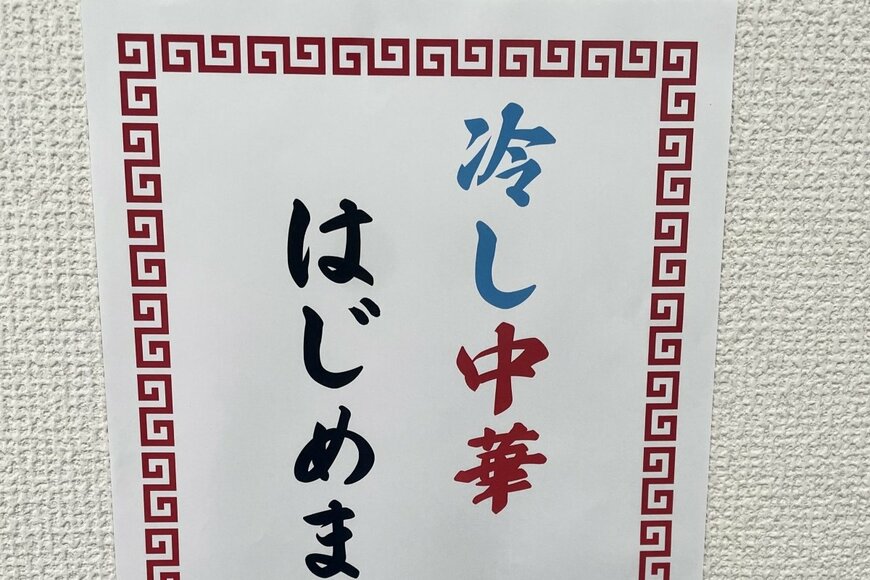 冷し中華
はじめま